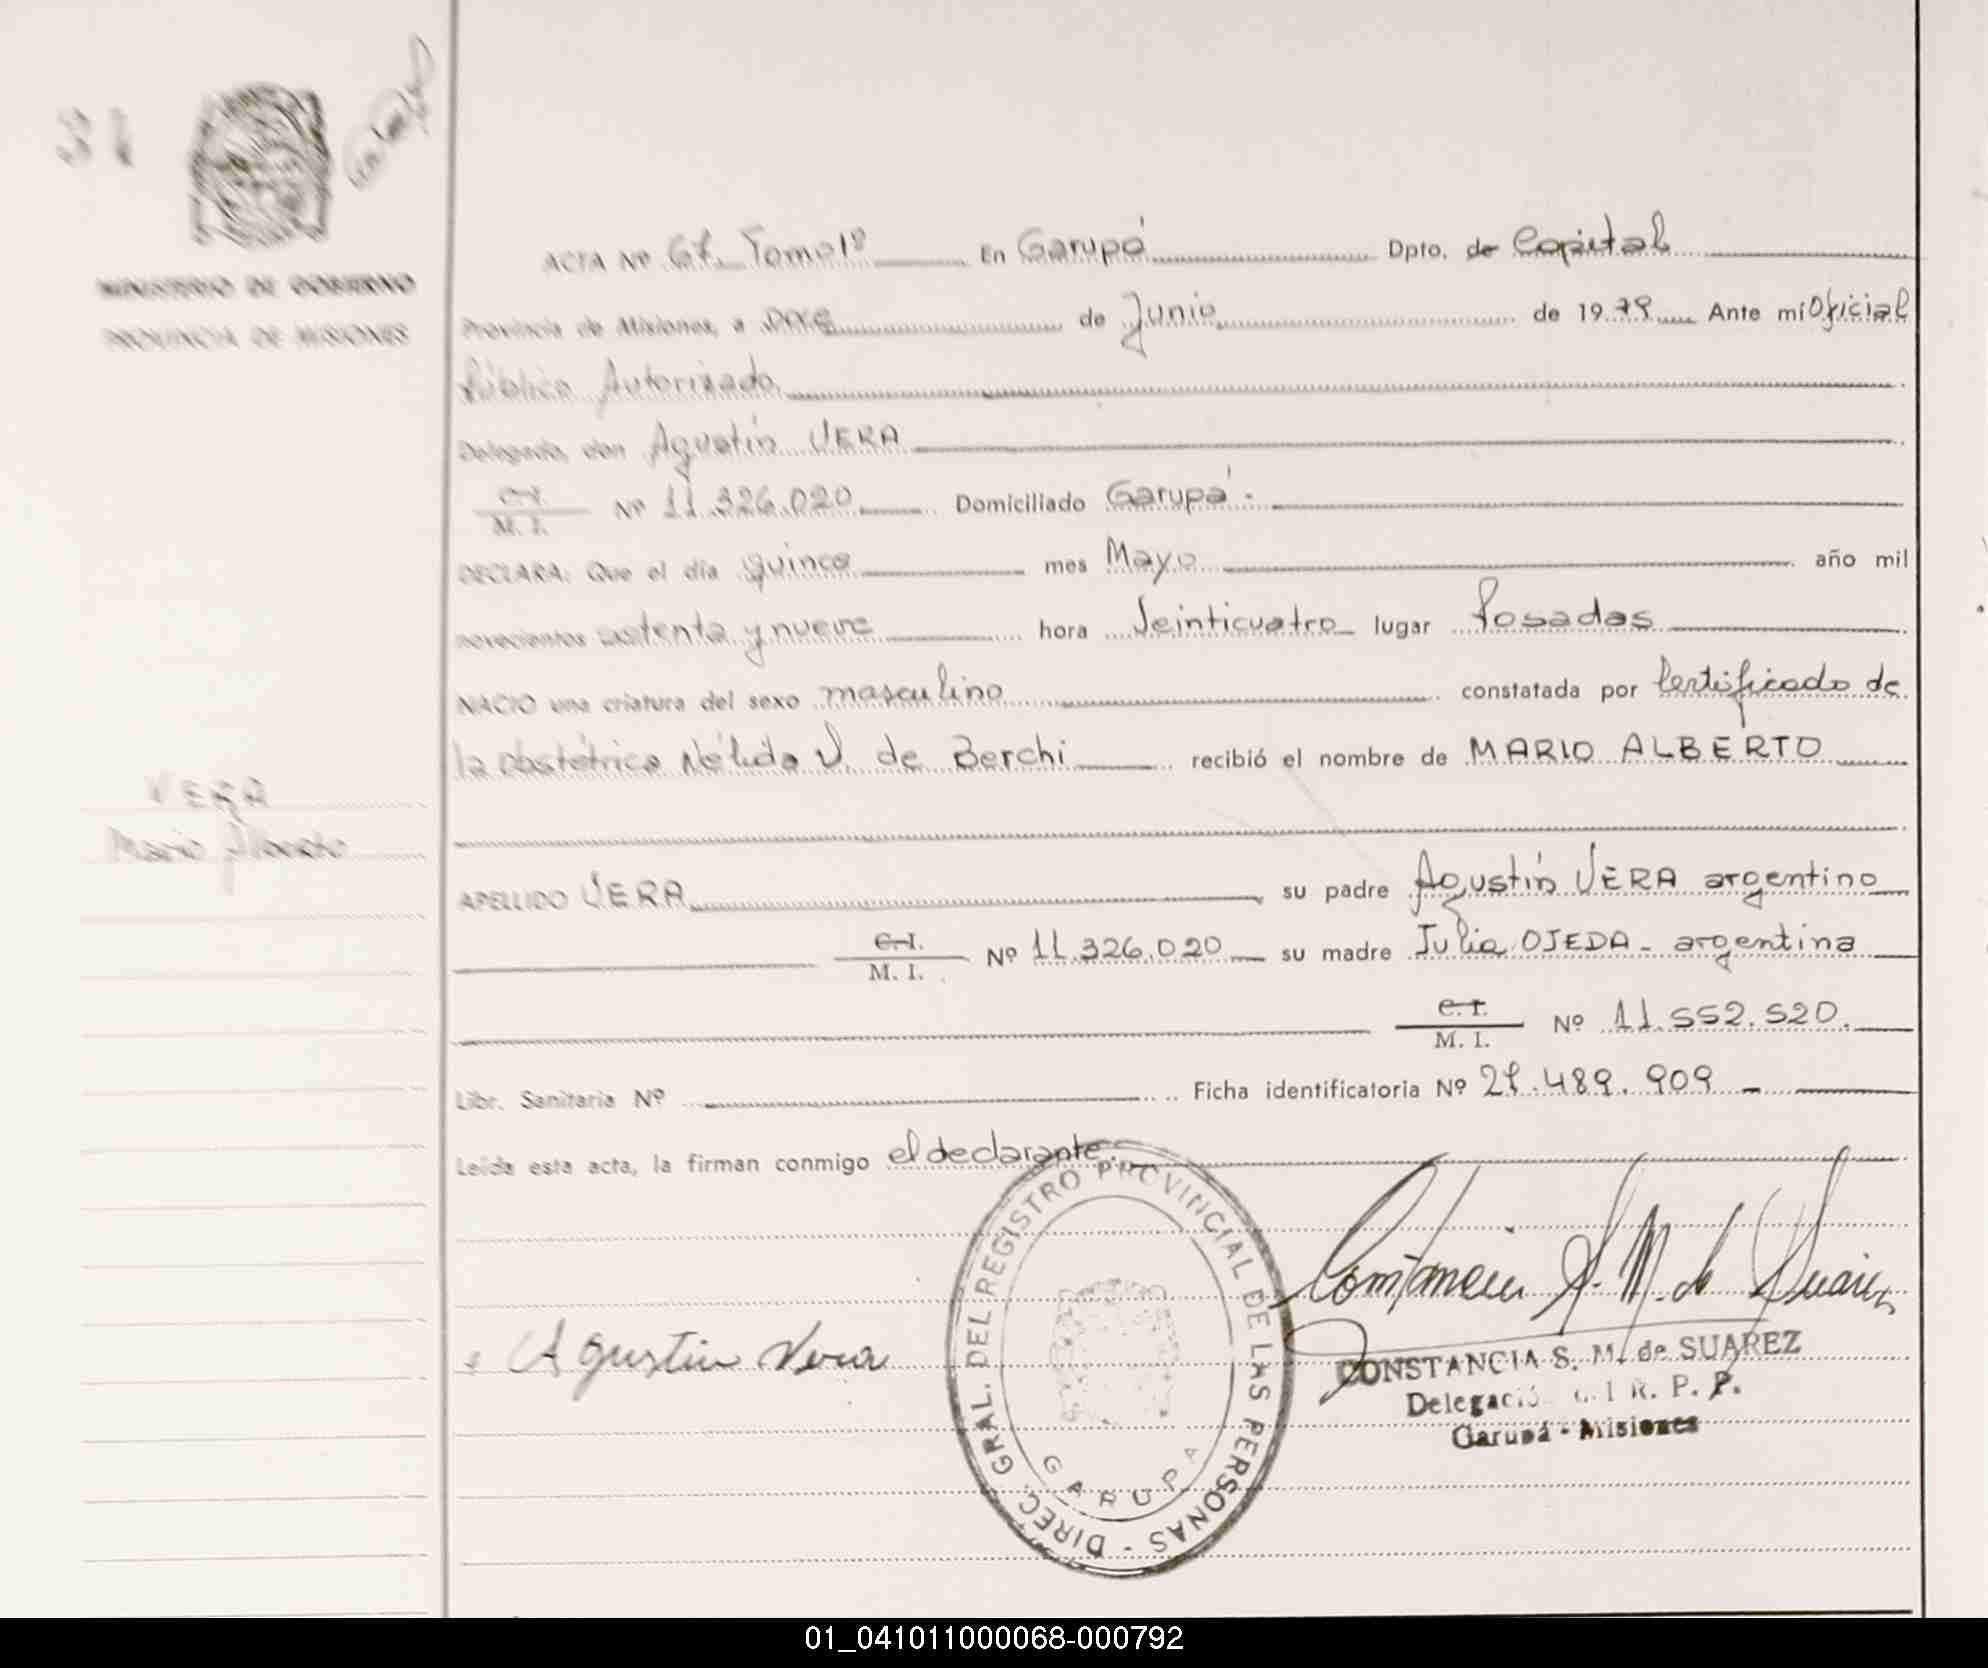 31
MINISTERIO DE GOBIERNO
PROVINCIA DE MISIONES
ACTA Nº 67 Tomo 1º En Garupá Dpto. de Capital
Provincia de Misiones, a once de Junio de 1979 Ante mí Oficial
Público Autorizado
Delegado, don Agustín VERA
C. I.
M. I. Nº 11.326.020 Domiciliado Garupá.
DECLARA: Que el día quince mes Mayo año mil
novecientos setenta y nueve hora Veinticuatro lugar Posadas
NACIO una criatura del sexo masculino constatada por Certificado de
la obstétrica Nélida V. de Berchi recibió el nombre de MARIO ALBERTO
VERA
Mario Alberto
APELLIDO VERA su padre Agustín VERA argentino
C. I.
M. I. Nº 11.326.020 su madre Julia OJEDA - argentina
C. I.
M. I. Nº 11.552.520.
Libr. Sanitaria Nº Ficha identificatoria Nº 27.489.909 -
Leída esta acta, la firman conmigo el declarante.
DIREC. GRAL. DEL REGISTRO PROVINCIAL DE LAS PERSONAS -
GARUPA
Constancia S. M. de Suarez
Agustin Vera
CONSTANCIA S. M. de SUAREZ
R. P. P.
Garupá - Misiones
01_041011000068-000792